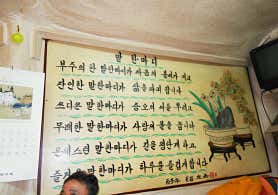 말 한마디
부주의한 말 한마디가 싸움의 불씨가 되고
잔인한 말 한마디가 삶을 파괴 합니다
쓰디쓴 말 한마디가 증오의 씨를 뿌리고
무례한 말 한마디가 사랑의 불을 끕니다
은혜스런 말 한마디가 길을 평탄케 하고
즐거운 말 한마디가 하루를 즐겁게 합니다